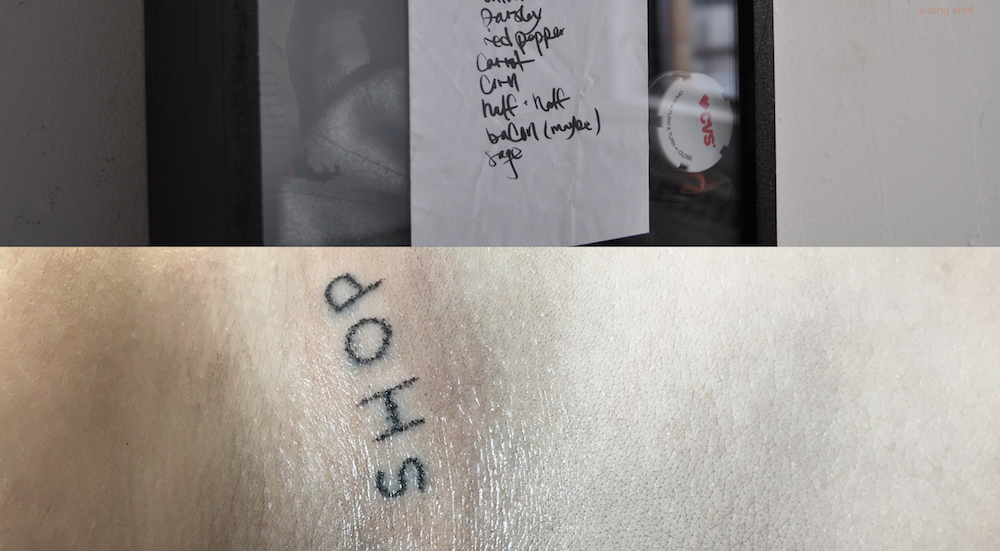 a long shot
Parsley
red pepper
Carrot
Corn
half + half
bacon (maybe)
sage
CVS
SHOP